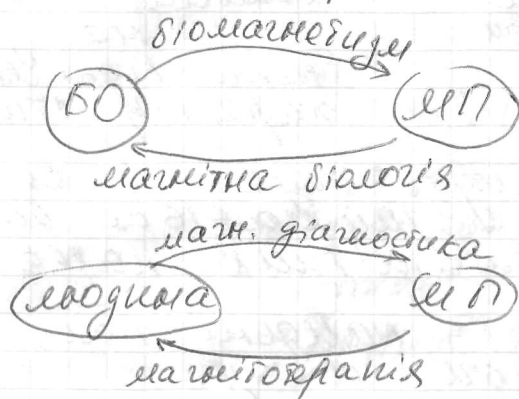 біомагнетизм
БО МП
магнітна біологія
магн. діагностика
людина МП
магнітотерапія